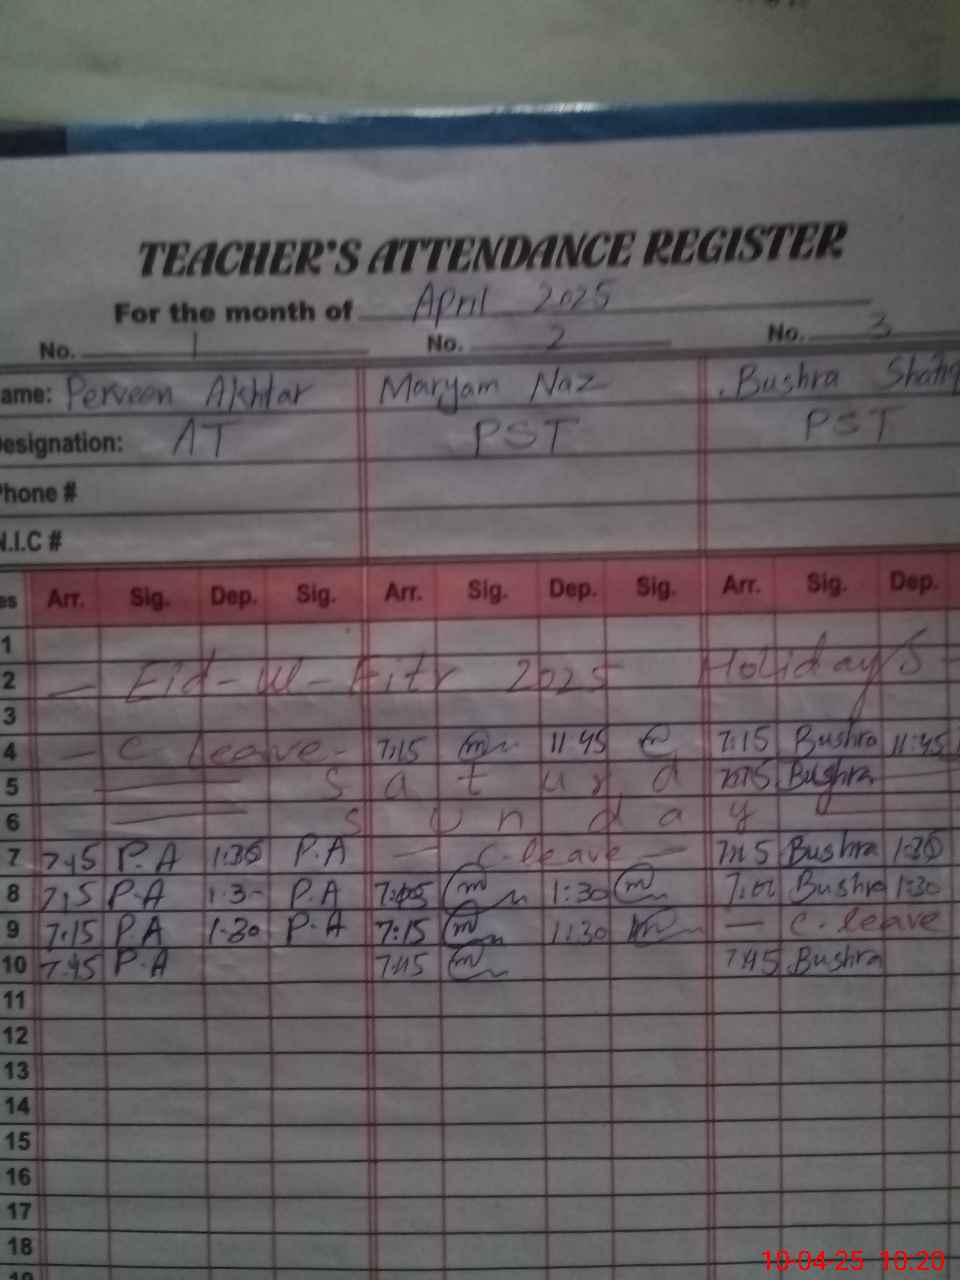 TEACHER'S ATTENDANCE REGISTER
For the month of April 2025
No. 1 No. 2 No. 3
ame: Perveen Akhtar Maryam Naz Bushra
esignation: AT PST PST
Phone #
N.I.C #
es Arr. Sig. Dep. Sig. Arr. Sig. Dep. Sig. Arr. Sig. Dep.
1
2 Eid-Ul-Fitr 2025 Holidays
3
4 C leave 7:15 m 11:45 m 7:15 Bushra 11:45
5 Saturda Bushra
6 Sunday
7 P.A 1:30 P.A C.leave Bushra 1:30
8 P.A 1:3- P.A m 1:30 m Bushra 1:30
9 7:15 P.A 1:30 P.A 7:15 m 1:30 C.leave
10 7:45 P.A 7:45 m 7:45 Bushra
11
12
13
14
15
16
17
18
10-04-25 10:20